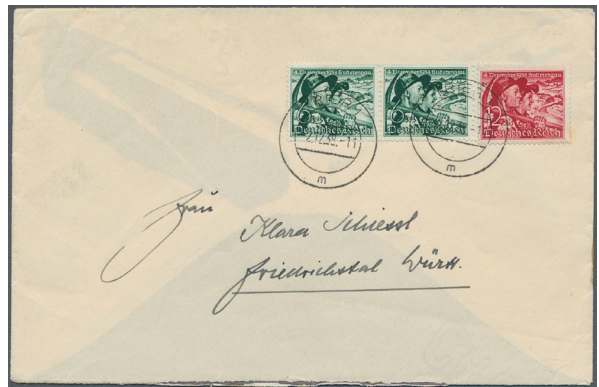 4. Dezember 1938 Sudetengau
6
Deutsches Reich
4. Dezember 1938 Sudetengau
6
Deutsches Reich
4. Dezember 1938 Sudetengau
12
Deutsches Reich
2.12.38.-11
m
m
Frau
Klara Schiessl
Friedrichstal Württ.